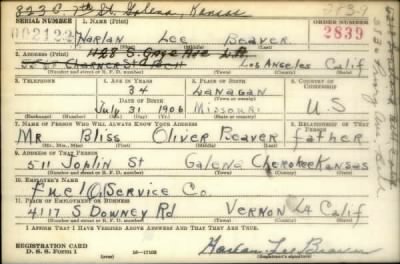 823 E 7th St. Galena, Kansas
SERIAL NUMBER
1. NAME (Print)
ORDER NUMBER
2839
002122
Harlan Lee Beaver
2839
(First) (Middle) (Last)
2. ADDRESS (Print)
1128 S. Gage Ave L.A.
Los Angeles Calif
(Number and street or R. F. D. number) (Town) (County) (State)
3. TELEPHONE
4. AGE IN YEARS
34
5. PLACE OF BIRTH
Lanagan
6. COUNTRY OF CITIZENSHIP
DATE OF BIRTH
July 31 1906
Missouri
U S
(Exchange) (Number)
(Mo.) (Day) (Yr.)
(State or country)
7. NAME OF PERSON WHO WILL ALWAYS KNOW YOUR ADDRESS
8. RELATIONSHIP OF THAT PERSON
Mr Bliss Oliver Beaver father
(Mr., Mrs., Miss) (First) (Middle) (Last)
9. ADDRESS OF THAT PERSON
511 Joplin St Galena Cherokee Kansas
(Number and street or R. F. D. number) (Town) (County) (State)
10. EMPLOYER'S NAME
Fuel O. Service Co
11. PLACE OF EMPLOYMENT OR BUSINESS
4117 S Downey Rd Vernon LA Calif
(Number and street or R. F. D. number) (Town) (County) (State)
I AFFIRM THAT I HAVE VERIFIED ABOVE ANSWERS AND THAT THEY ARE TRUE.
REGISTRATION CARD
D. S. S. Form 1
16—17105
Harlan Lee Beaver
(Registrant's signature)